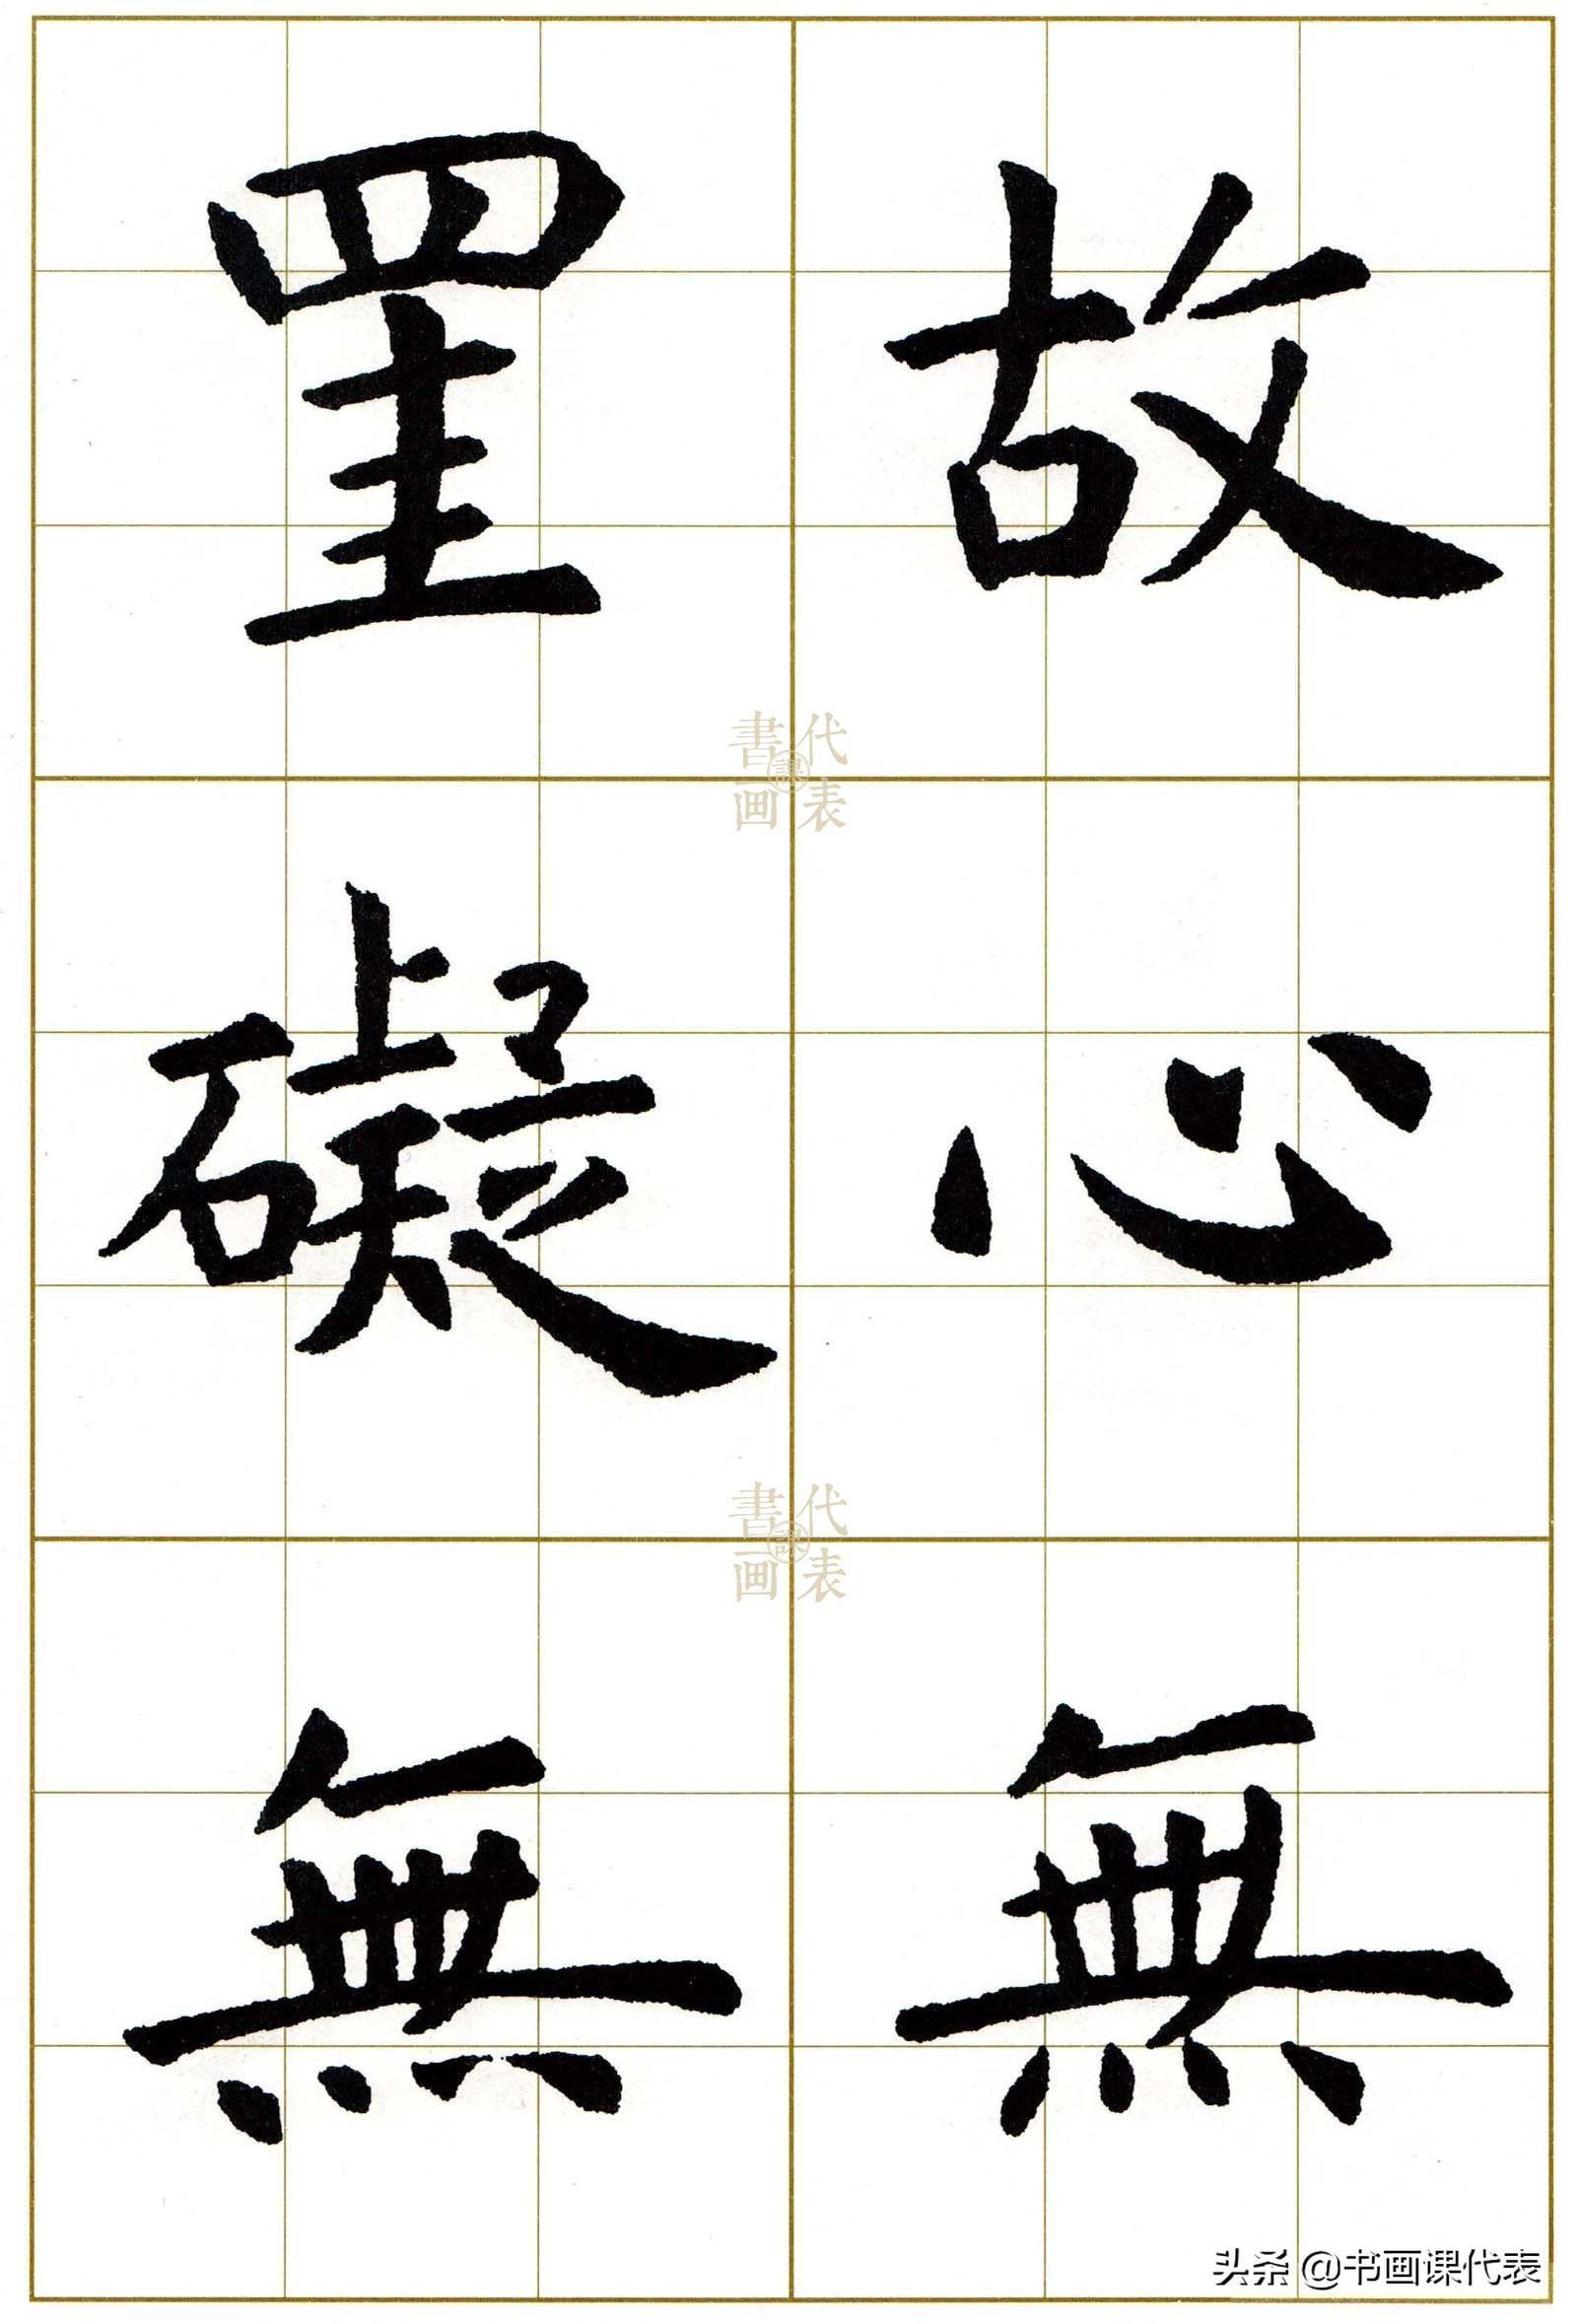 故心無
罣礙無
書画課代表
書画課代表
头条 @书画课代表